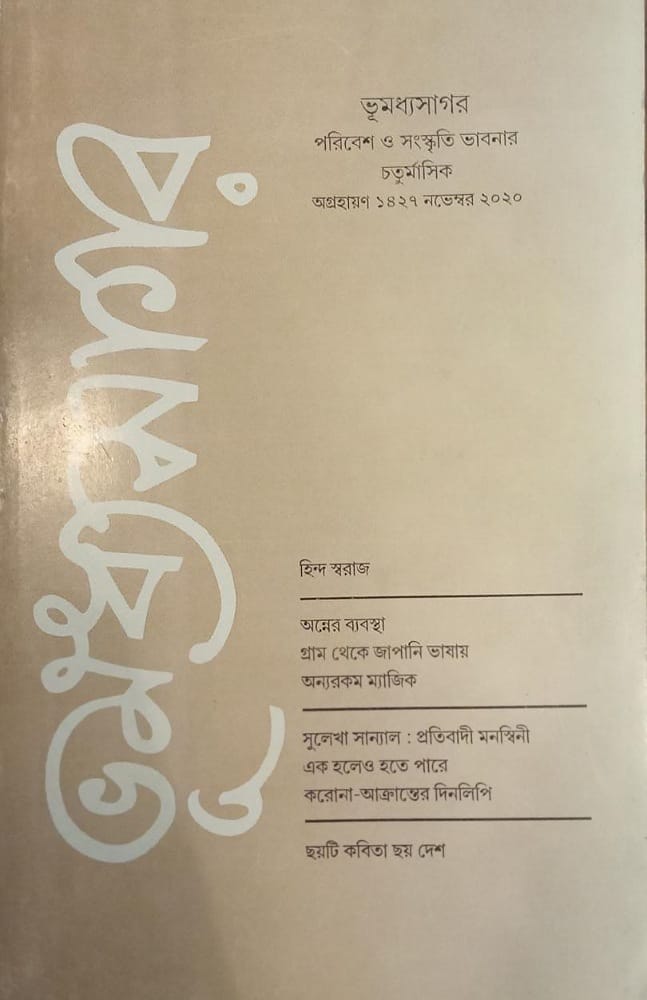 ভূমধ্যসাগর
ভূমধ্যসাগর
পরিবেশ ও সংস্কৃতি ভাবনার
চতুর্মাসিক
অগ্রহায়ণ ১৪২৭ নভেম্বর ২০২০
হিন্দ স্বরাজ
অন্নের ব্যবস্থা
গ্রাম থেকে জাপানি ভাষায়
অন্যরকম ম্যাজিক
সুলেখা সান্যাল : প্রতিবাদী মনস্বিনী
এক হলেও হতে পারে
করোনা-আক্রান্তের দিনলিপি
ছয়টি কবিতা ছয় দেশ